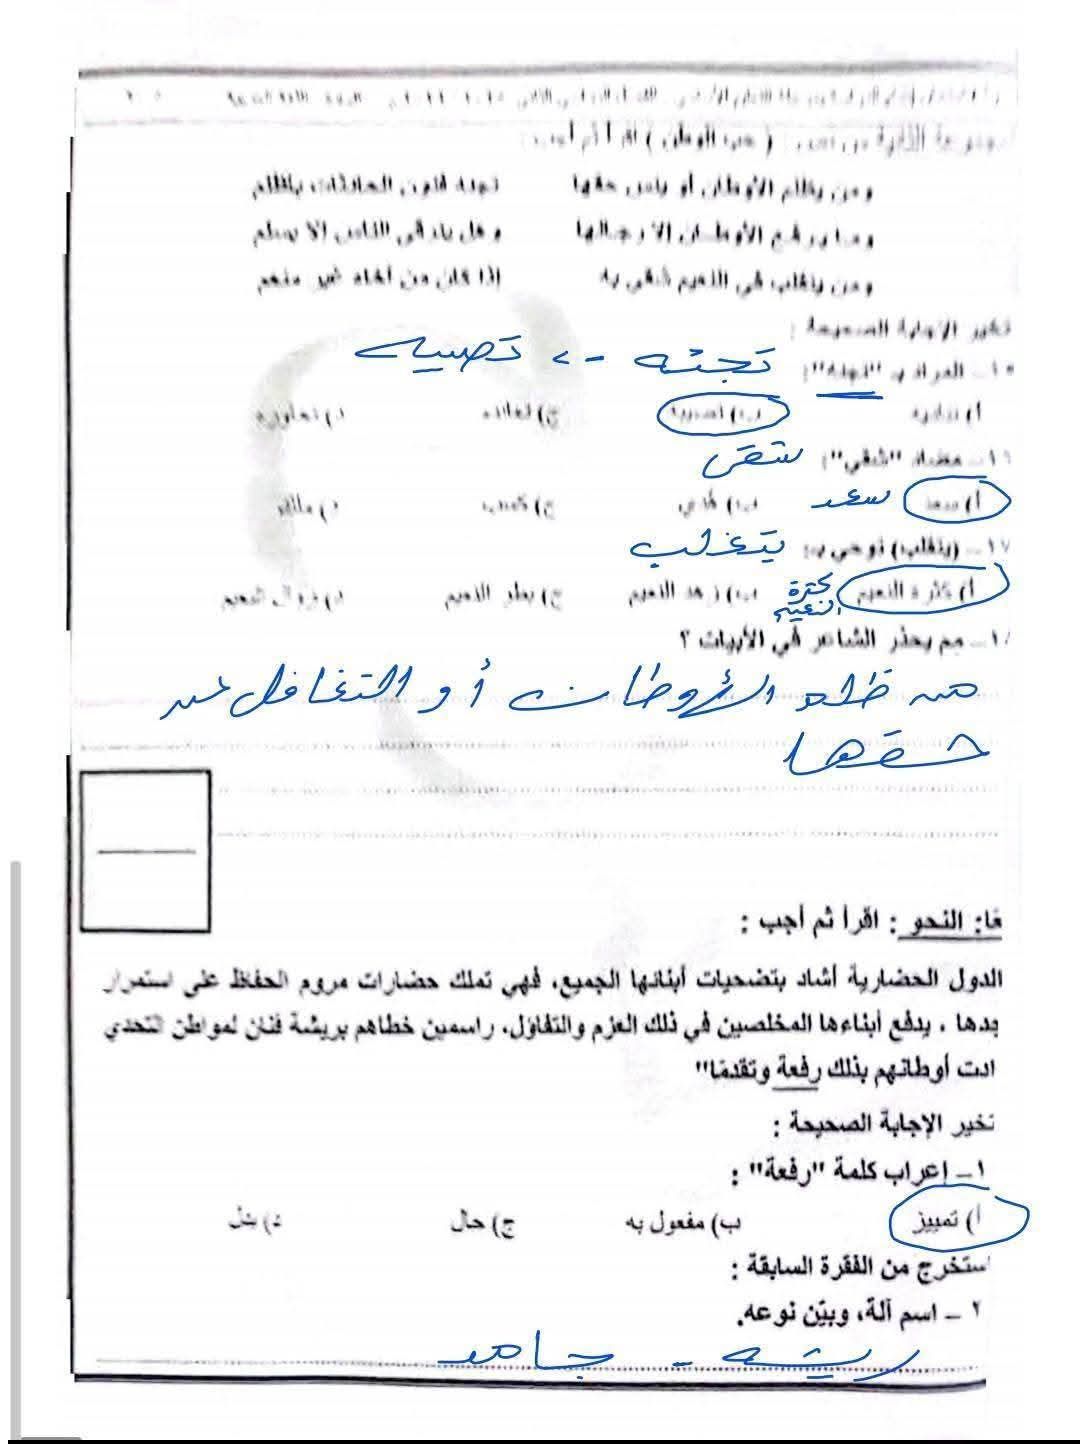 ( حب الوطن ) اقرأ ثم أجب :
ومن يظلم الأوطان أو ينس حقها تجئه فنون الحادثات بأظلم
وما يرفع الأوطان إلا رجالها وهل يترقى الناس إلا بسلم
ومن يتقلب في النعيم شقي به إذا كان من آخاه غير منعم
تخير الإجابة الصحيحة :
المراد بـ "تجئه": تجئه -> تصيبه
أ) ب) تصيبه ج) تعانده د) تجاوزه
١٦ــ مضاد "شقي": شقى
أ) سعد سعد ب) ج) د)
١٧ــ (يتقلب) توحي بـ: يتغلب
أ) كثرة النعيم كثرة النعيم ب) زهد النعيم ج) بطر النعيم د) زوال النعيم
ــ مم يحذر الشاعر في الأبيات ؟
من ظلم الأوطان أو التغافل عن
حقها
النحو : اقرأ ثم أجب :
الدول الحضارية أشاد بتضحيات أبنائها الجميع، فهي تملك حضارات مروم الحفاظ على استمرار
بدها ، يدفع أبناءها المخلصين في ذلك العزم والتفاؤل، راسمين خطاهم بريشة فنان لمواطن التحدي
ادت أوطانهم بذلك رفعة وتقدمًا"
تخير الإجابة الصحيحة :
١ــ إعراب كلمة "رفعة" :
أ) تمييز ب) مفعول به ج) حال د) بدل
ستخرج من الفقرة السابقة :
٢ ــ اسم آلة، وبيّن نوعه.
ريشه - جامد